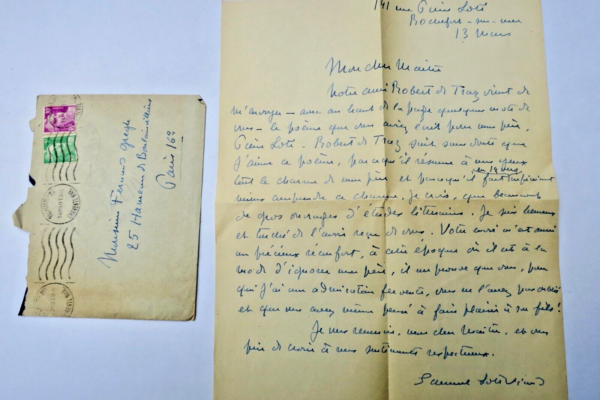 Monsieur Fernand Gregh
25 Hameau de Boulainvilliers
Paris 16e
141 rue Pierre Loti
Rochefort-sur-mer
13 Mars
Mon cher Maître
Notre ami Robert de Traz vient de
m'envoyer - avec au haut de la page quelques mots de
vous - le poème que vous aviez écrit pour mon père,
Pierre Loti. Robert de Traz sait sans doute que
j'aime ce poème, parce qu'il résume à mes yeux
tout le charme de mon père et parce qu'il fait, en 14 vers,
mieux comprendre ce charme, je crois, que beaucoup
de gros ouvrages d'études littéraires. Je suis heureux
et touché de l'avoir reçu de vous. Votre envoi m'est aussi
un précieux réconfort, à cette époque où il est à la
mode d'ignorer mon père, il me prouve que vous, pour
qui j'ai une admiration fervente, vous ne l'avez pas oublié
et que vous avez même pensé à faire plaisir à son fils!
Je vous remercie, mon cher Maître, et vous
prie de croire à mes sentiments respectueux.
Samuel Loti-Viaud